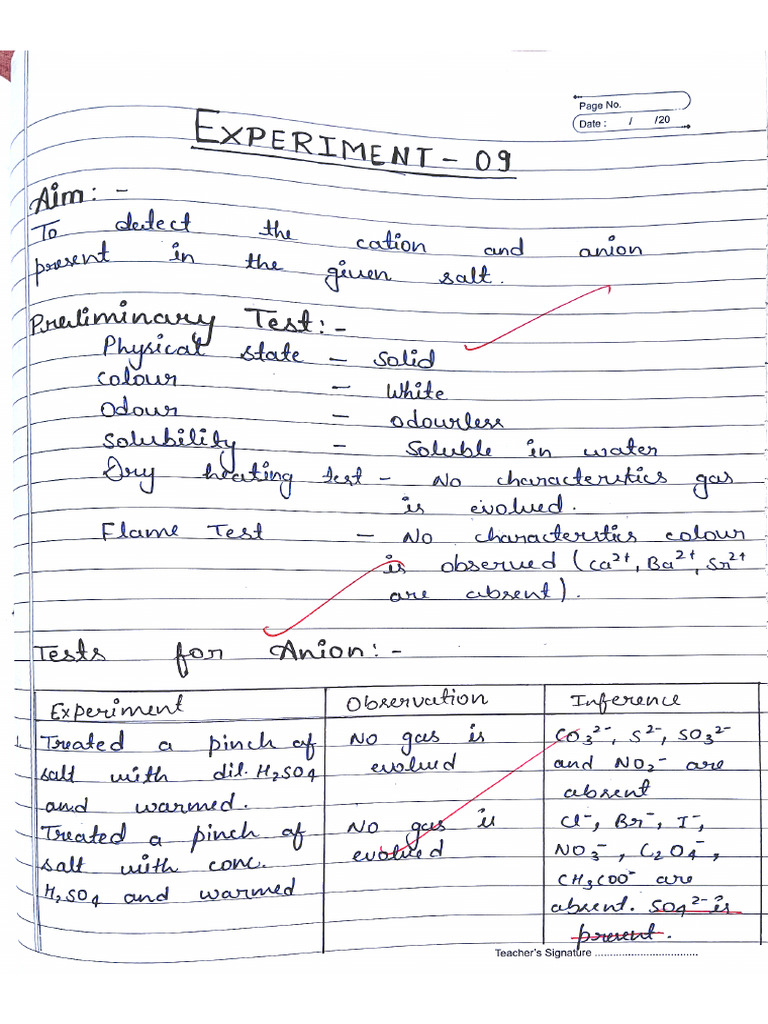 Page No.
Date : / /20
EXPERIMENT - 09
Aim: -
To detect the cation and anion
present in the given salt.
Preliminary Test: -
Physical state - Solid
Colour - White
Odour - Odourless
Solubility - Soluble in water
Dry heating test - No characteristics gas
is evolved.
Flame Test - No characteristics colour
is observed (Ca²⁺, Ba²⁺, Sr²⁺
are absent).
Tests for Anion: -
Experiment Observation Inference
1. Treated a pinch of No gas is CO₃²⁻, S²⁻, SO₃²⁻
salt with dil. H₂SO₄ evolved and NO₂⁻ are
and warmed. absent
Treated a pinch of No gas is Cl⁻, Br⁻, I⁻,
salt with conc. evolved NO₃⁻, C₂O₄⁻,
H₂SO₄ and warmed CH₃COO⁻ are
absent. SO₄²⁻ is
present.
Teacher's Signature ..................................